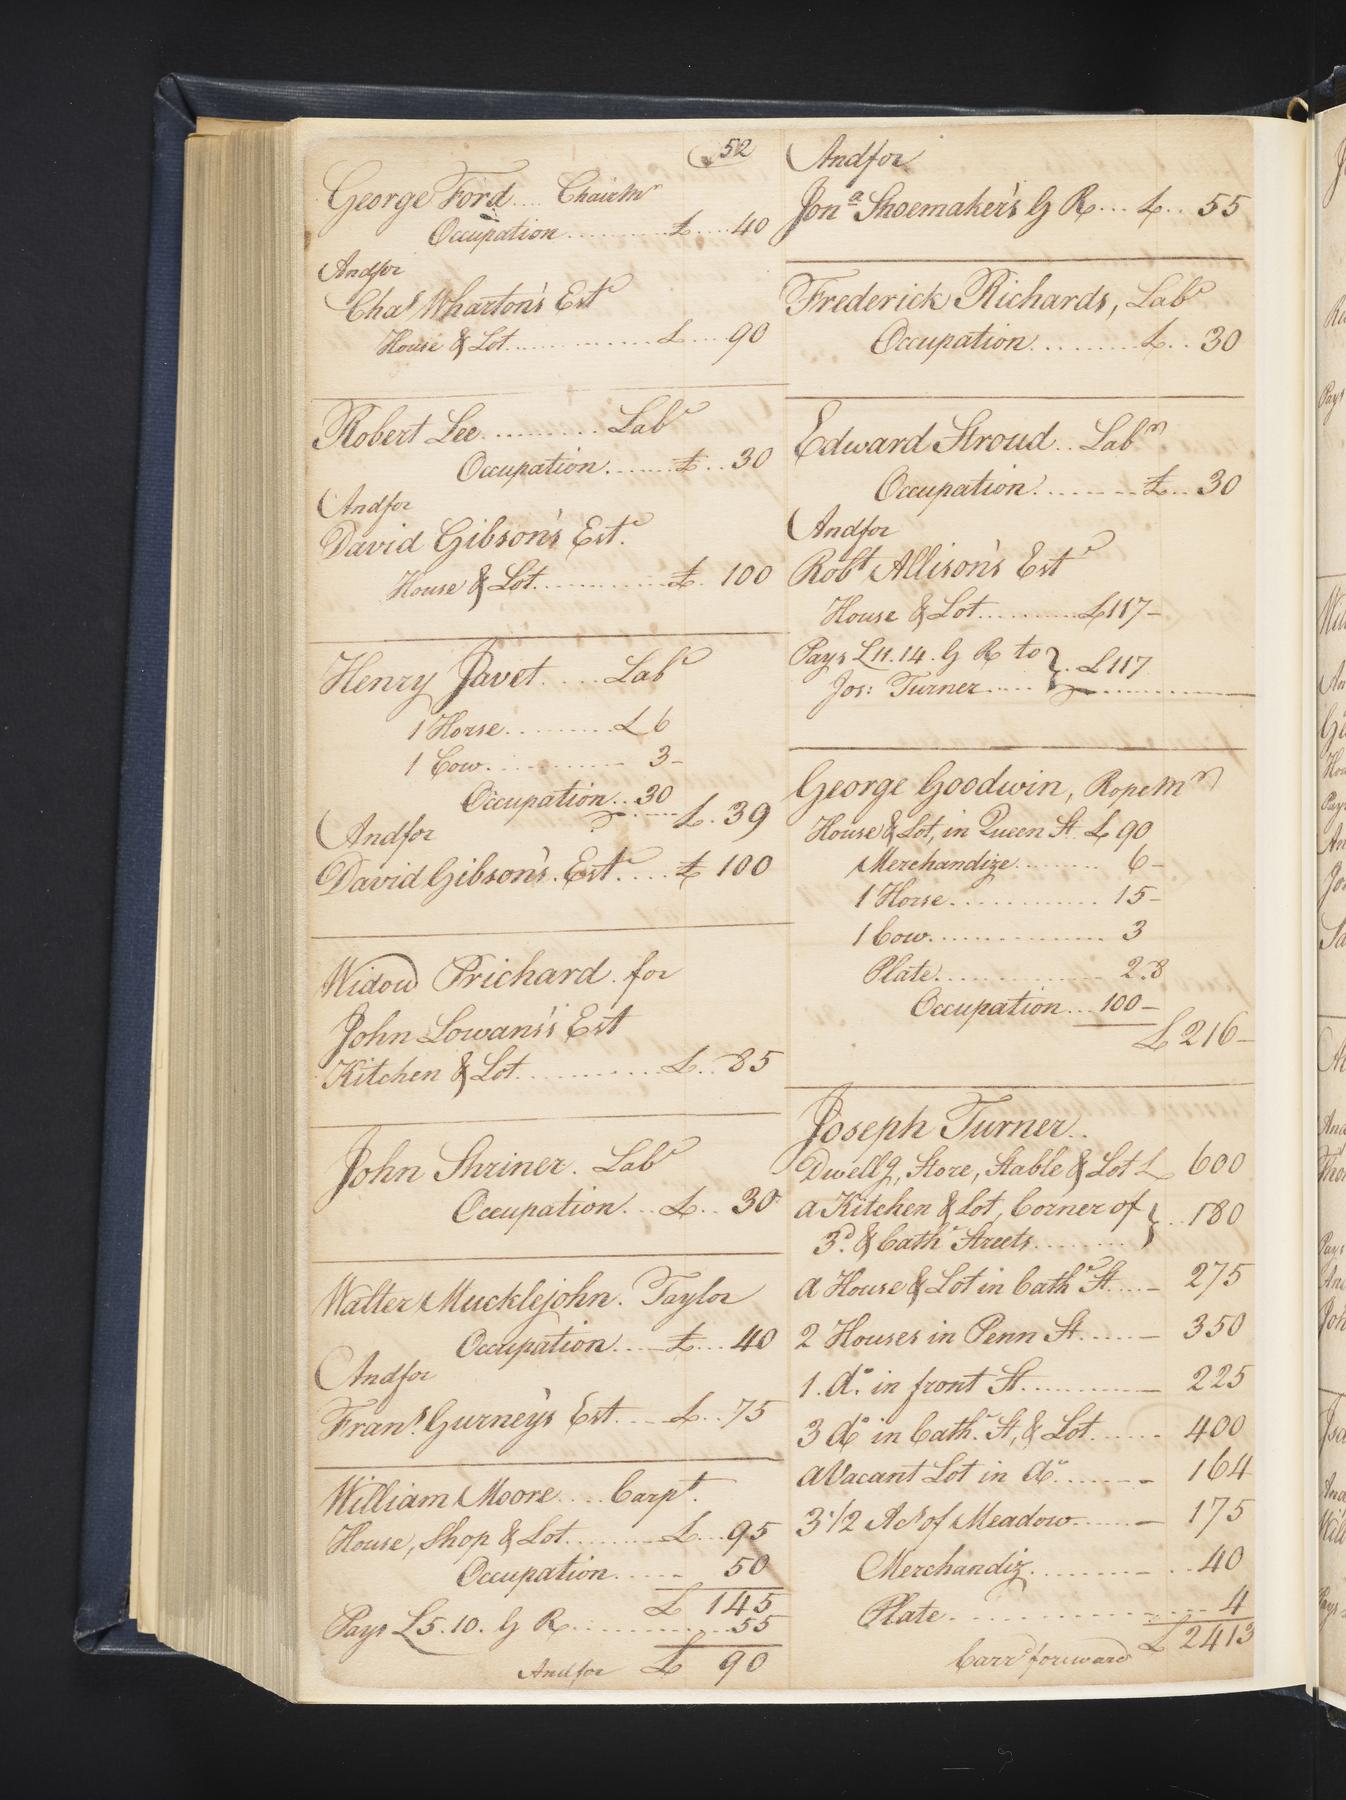 52
George Ford .... Chairmr
Occupation .......... £ .... 40
And for
Chas Wharton's Este
House & Lot .............. £ .... 90
Robert Lee .......... Labr
Occupation ....... £ .. 30
And for
David Gibson's Este
House & Lot ........... £ . 100
Henry Javet .... Labr
1 Horse ......... £ 6
1 Cow ........... 3-
Occupation .. 30
£ . 39
And for
David Gibson's Este .... £ 100
Widow Prichard for
John Lowans's Est
Kitchen & Lot ........... £ .. 85
John Shriner . Labr
Occupation ... £ .. 30
Walter Mucklejohn . Taylor
Occupation .... £ ... 40
And for
Frans Gurney's Est .... £ .. 75
William Moore .... Carpt.
House, Shop & Lot ........ £ ... 95
Occupation ..... 50
£ 145
Pays £5.10. G R .......... 55
And for £ 90
And for
Jona Shoemaker's G R ... £ .. 55
Frederick Richards, Labr
Occupation ......... £ .. 30
Edward Stroud .. Labr
Occupation ........ £ .. 30
And for
Robt Allison's Este
House & Lot .......... £117-
Pays £11.14. G R to } . £117
Jos: Turner .....
George Goodwin, Ropemr
House & Lot, in Queen St. £ 90
Merchandize ........ 6-
1 Horse ............ 15-
1 Cow ............... 3
Plate .............. 2.8
Occupation ... 100-
£ 216-
Joseph Turner ..
Dwellg, Store, Stable & Lot £ 600
a Kitchen & Lot, Corner of } .. 180
3d & Cathe Streets ........
a House & Lot in Cathe St .... - 275
2 Houses in Penn St ...... - 350
1 . do. in front St. ........... - 225
3 do in Cathe St, & Lot ...... 400
a Vacant Lot in do ...... - 164
3 1/2 Acs of Meadow ...... - 175
Merchandiz ......... - .. 40
Plate .................. 4
£ 2413
Carrd forward